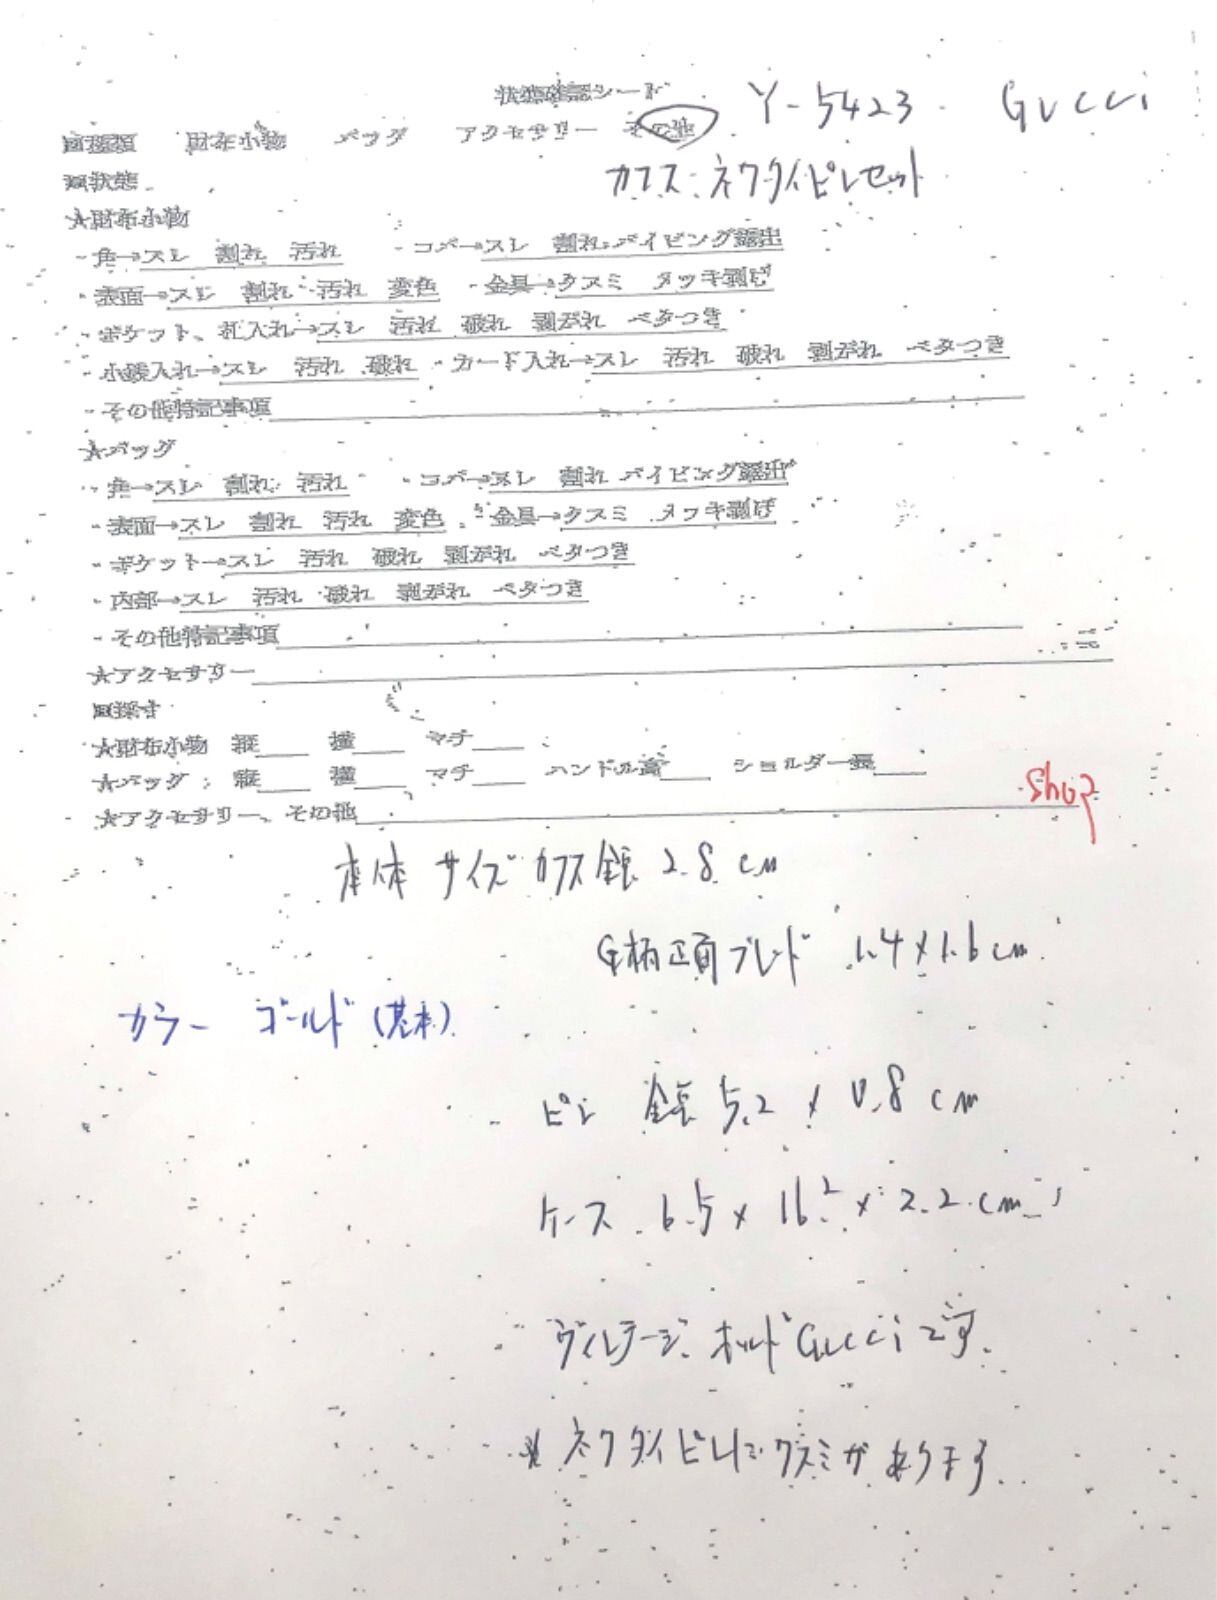 状態確認シート Y-5423 Gucci
■種類 財布小物 バッグ アクセサリー その他
カフス:ネクタイピンセット
■状態
★財布小物
・角→スレ 割れ 汚れ ・コバ→スレ 割れ パイピング露出
・表面→スレ 割れ 汚れ 変色 ・金具→クスミ メッキ剥げ
・ポケット、札入れ→スレ 汚れ 破れ 剥がれ ベタつき
・小銭入れ→スレ 汚れ 破れ ・カード入れ→スレ 汚れ 破れ 剥がれ ベタつき
・その他特記事項
★バッグ
・角→スレ 割れ 汚れ ・コバ→スレ 割れ パイピング露出
・表面→スレ 割れ 汚れ 変色 ・金具→クスミ メッキ剥げ
・ポケット→スレ 汚れ 破れ 剥がれ ベタつき
・内部→スレ 汚れ 破れ 剥がれ ベタつき
・その他特記事項
★アクセサリー
■採寸
★財布小物 縦 横 マチ
★バッグ 縦 横 マチ ハンドル高 ショルダー長
shop
★アクセサリー、その他
本体サイズ カフス全長 2.8cm
G柄正面プレート 1.4×1.6cm
カラー ゴールド(基本)
ピン 全長5.2×0.8cm
ケース 6.5×16.2×2.2cm
ヴィンテージ、オールドGucciです。
※ネクタイピンにクスミがあります。